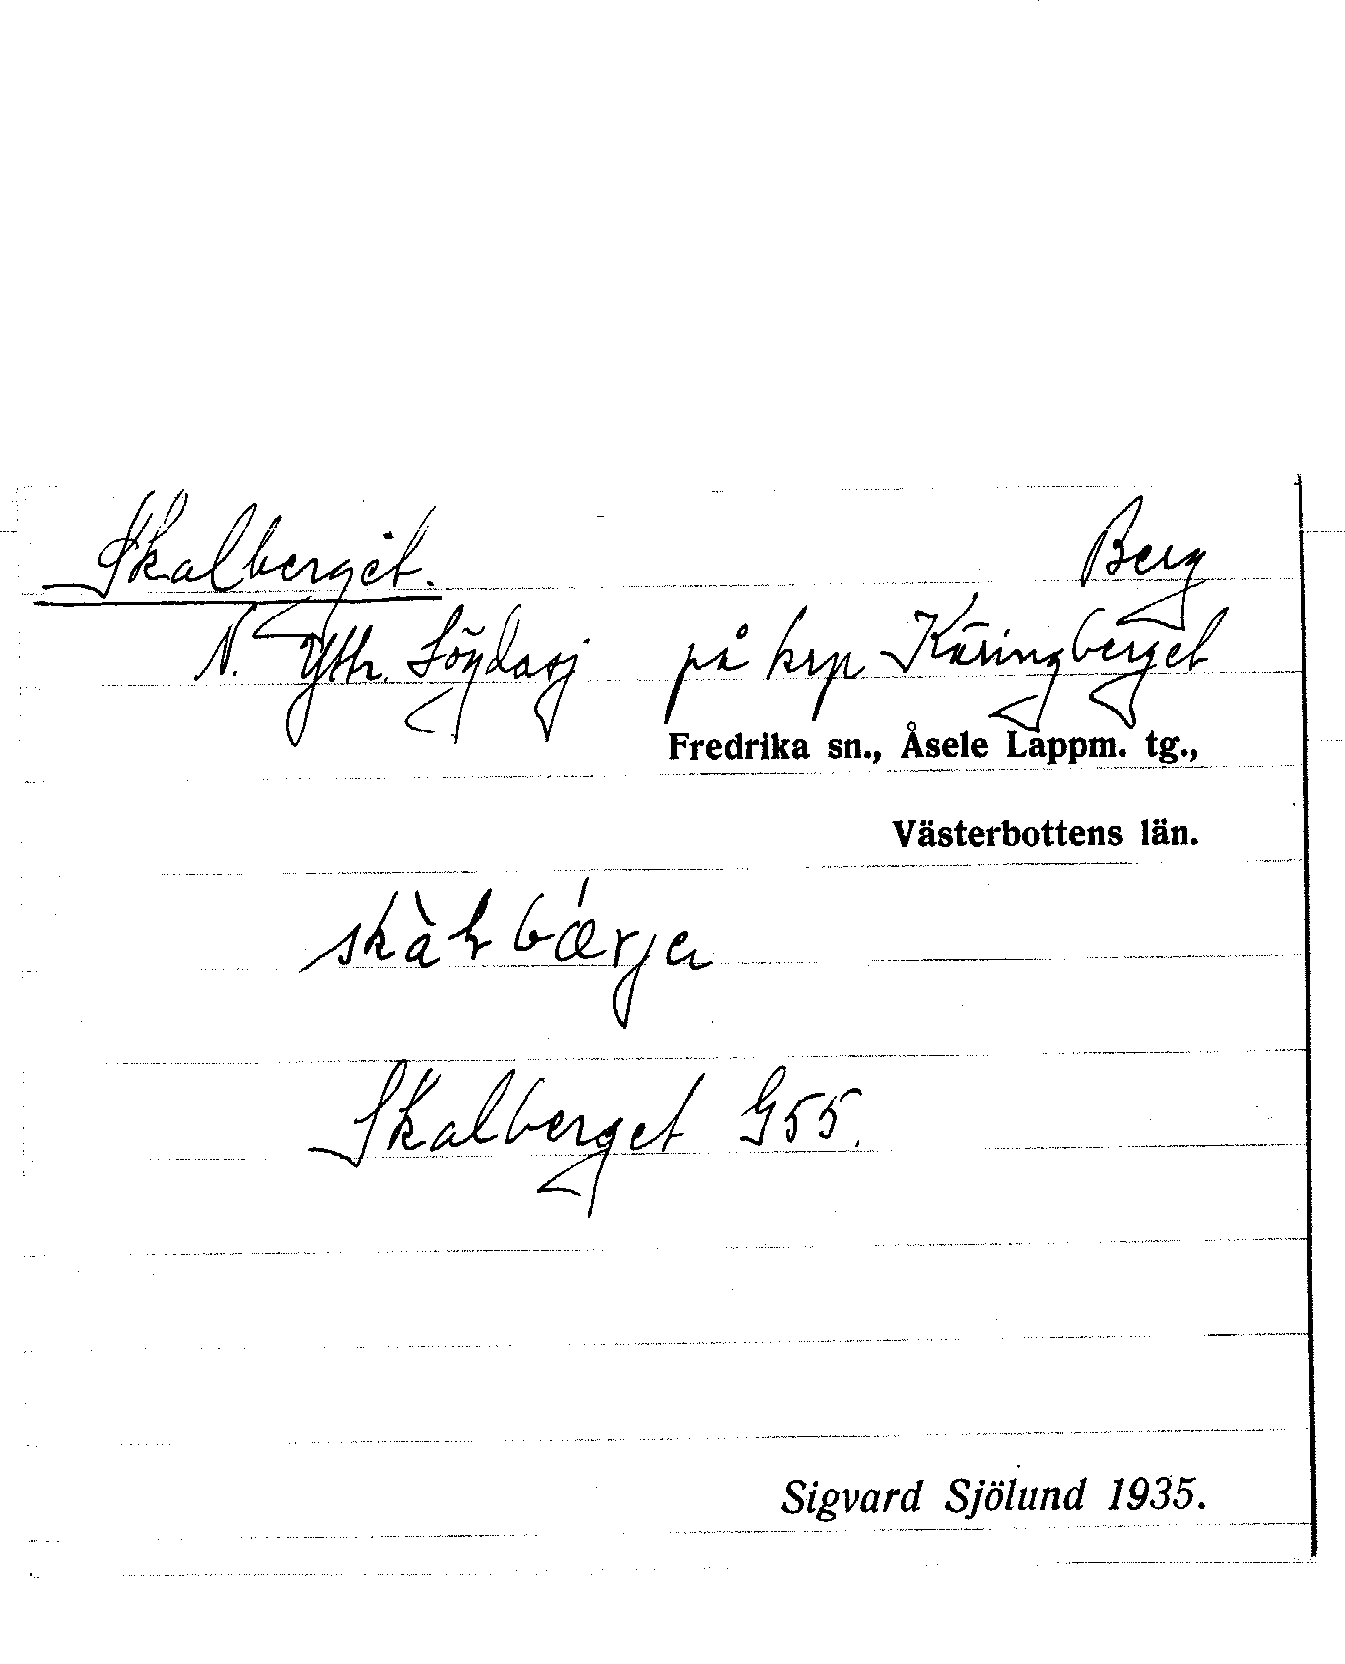 Skalberget. Berg
N. Yttr. Lögdasj på krp Käringberget
Fredrika sn., Åsele Lappm. tg.,
Västerbottens län.
Skalberget G55.
Sigvard Sjölund 1935.